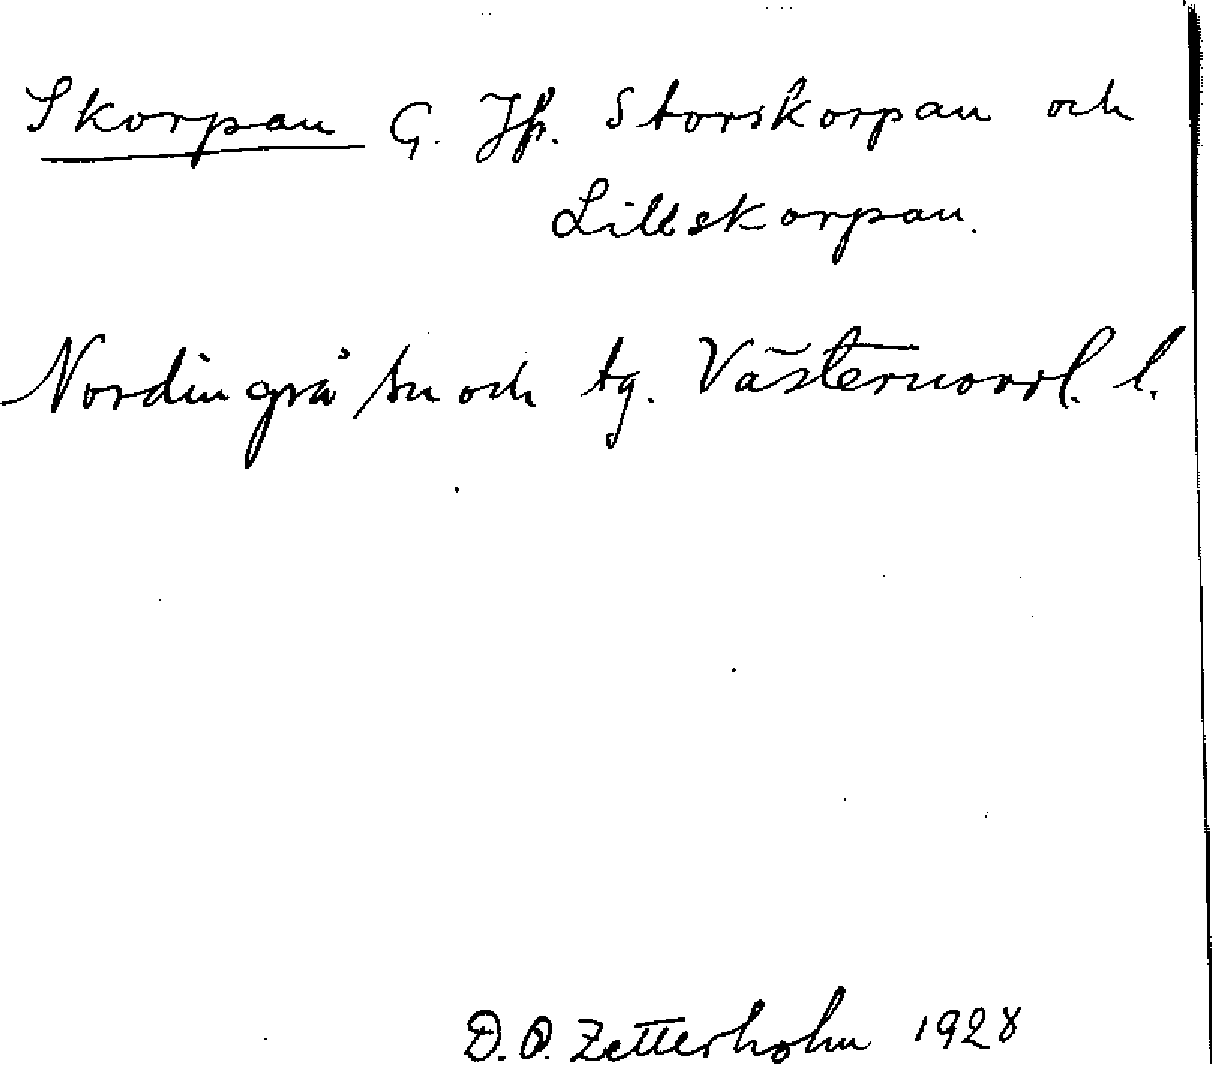 Skorpan G. Jfr. Storskorpan och
Lillskorpan.
Nordingrå sn och tg. Västernorrl. l.
D. O. Zetterholm 1928